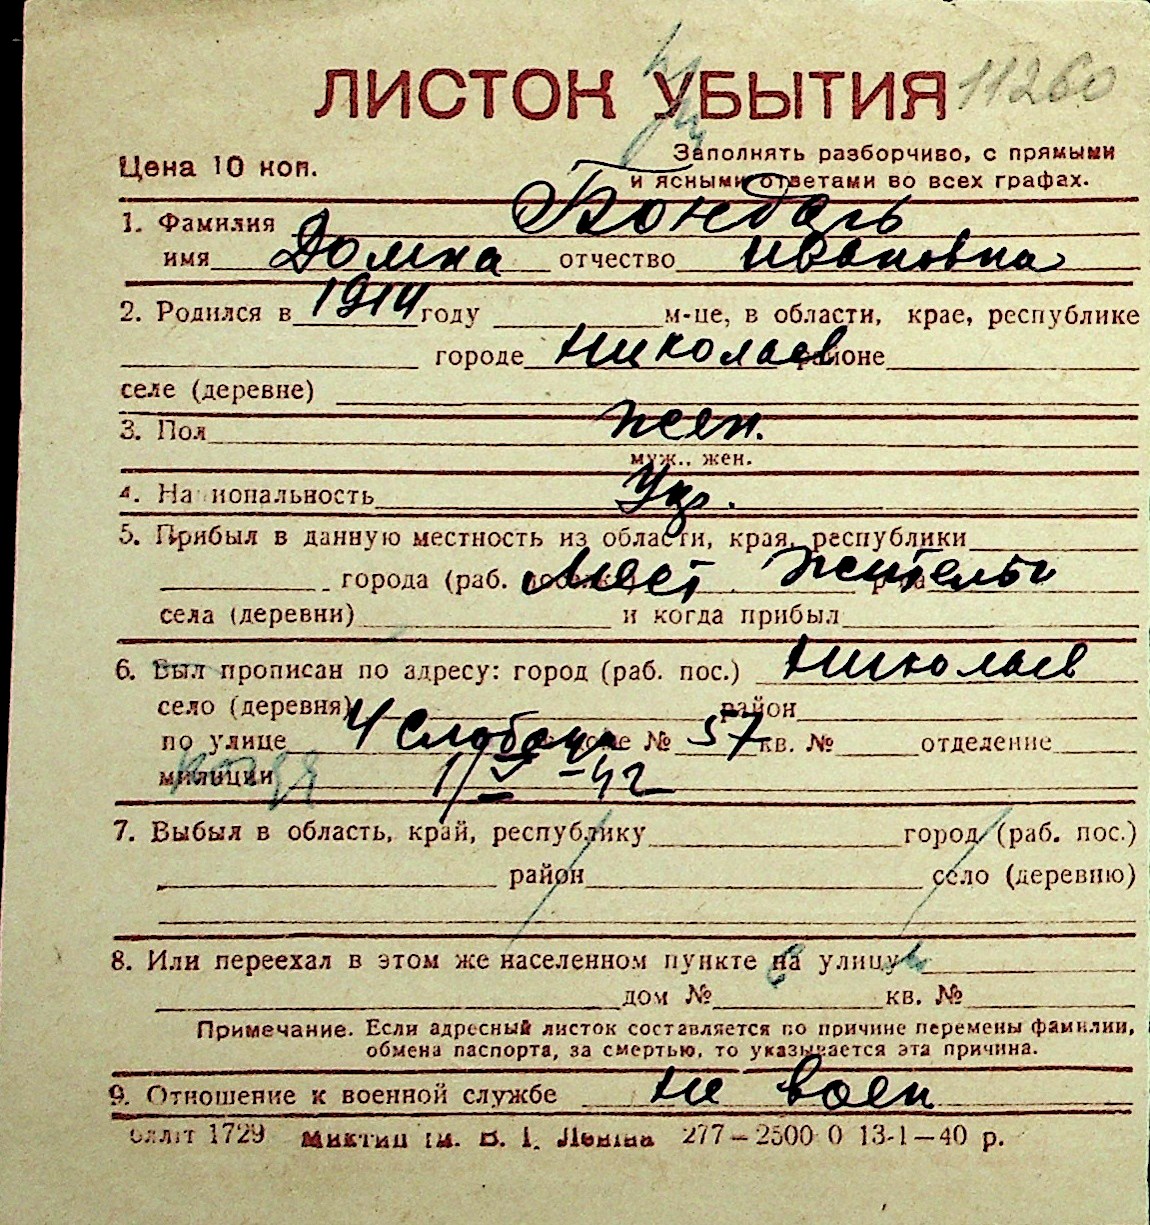 ЛИСТОК УБЫТИЯ 11260
Цена 10 коп.
Заполнять разборчиво, с прямыми
и ясными ответами во всех графах.
1. Фамилия Бондарь
имя Домна отчество Ивановна
2. Родился в 1914 году м-це, в области, крае, республике
городе Николаев районе
селе (деревне)
3. Пол жен.
муж., жен.
4. Национальность Укр.
5. Прибыл в данную местность из области, края, республики
города (раб. поселка) Мест. житель р-на
села (деревни) и когда прибыл
6. Был прописан по адресу: город (раб. пос.) Николаев
село (деревня) район
по улице 4 Слободн доме № 57 кв. № отделение
милиции 1/V-42
7. Выбыл в область, край, республику город (раб. пос.)
район село (деревню)
8. Или переехал в этом же населенном пункте на улицу
дом № кв. №
Примечание. Если адресный листок составляется по причине перемены фамилии,
обмена паспорта, за смертью, то указывается эта причина.
9. Отношение к военной службе не воен
1729 ім. В. І. Леніна 277—2500 0 13-1—40 р.